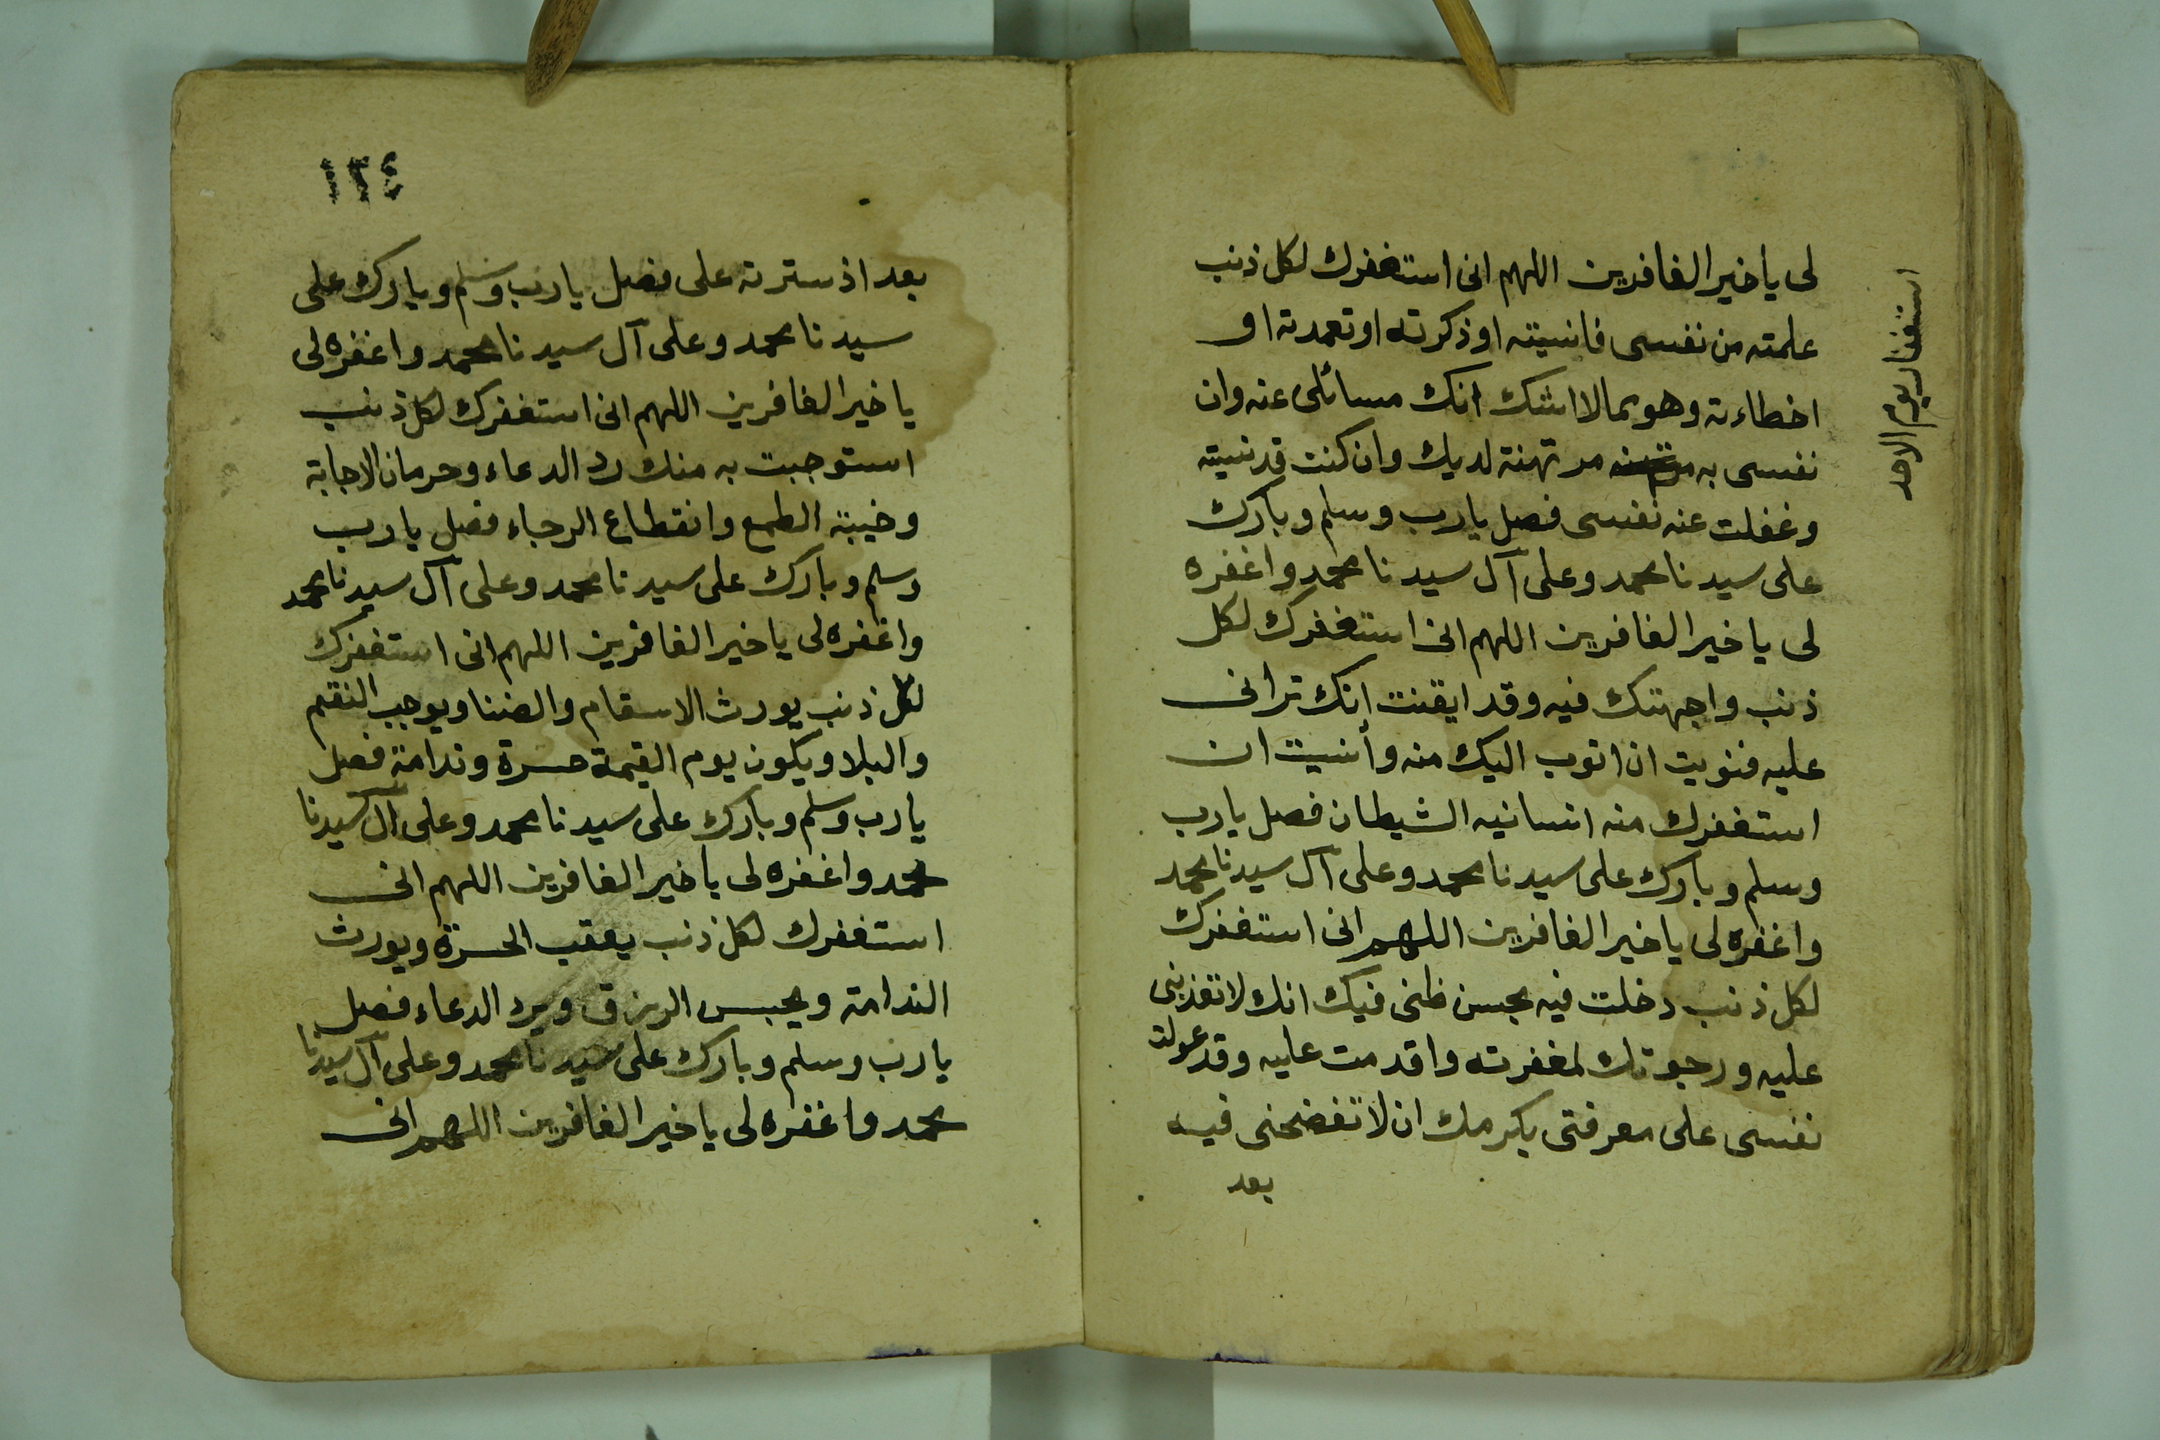 لى يا خير الغافرين اللهم انى استغفرك لكل ذنب
علمته من نفسى فانسيته او ذكرته او تعمدته او
اخطاءته وهو مما لا اشك انك مسائلى عنه وان
نفسى به مرتهنة لديك وان كنت قد نسيته
وغفلت عنه نفسى فصل يا رب وسلم وبارك
على سيدنا محمد وعلى آل سيدنا محمد واغفره
لى يا خير الغافرين اللهم انى استغفرك لكل
ذنب واجهتك فيه وقد ايقنت انك ترانى
عليه فنويت ان اتوب اليك منه وأنسيت ان
استغفرك منه انسانيه الشيطان فصل يا رب
وسلم وبارك على سيدنا محمد وعلى آل سيدنا محمد
واغفره لى يا خير الغافرين اللهم انى استغفرك
لكل ذنب دخلت فيه بحسن ظنى فيك انك لا تعذبنى
عليه ورجوتك لمغفرته واقدمت عليه وقد عولت
نفسى على معرفتى بكرمك ان لا تفضحنى فيه
بعد
استغفار يوم الاحد
١٣٤
بعد اذ سترته على فصل يا رب وسلم وبارك على
سيدنا محمد وعلى آل سيدنا محمد واغفره لى
يا خير الغافرين اللهم انى استغفرك لكل ذنب
استوجبت به منك رد الدعاء وحرمان الاجابة
وخيبة الطمع وانقطاع الرجاء فصل يا رب
وسلم وبارك على سيدنا محمد وعلى آل سيدنا محمد
واغفره لى يا خير الغافرين اللهم انى استغفرك
لكل ذنب يورث الاسقام والضنا ويوجب النقم
والبلا ويكون يوم القيمة حسرة وندامة فصل
يا رب وسلم وبارك على سيدنا محمد وعلى آل سيدنا
محمد واغفره لى يا خير الغافرين اللهم انى
استغفرك لكل ذنب يعقب الحسرة ويورث
الندامة ويحبس الرزق ويرد الدعاء فصل
يا رب وسلم وبارك على سيدنا محمد وعلى آل سيدنا
محمد واغفره لى يا خير الغافرين اللهم انى